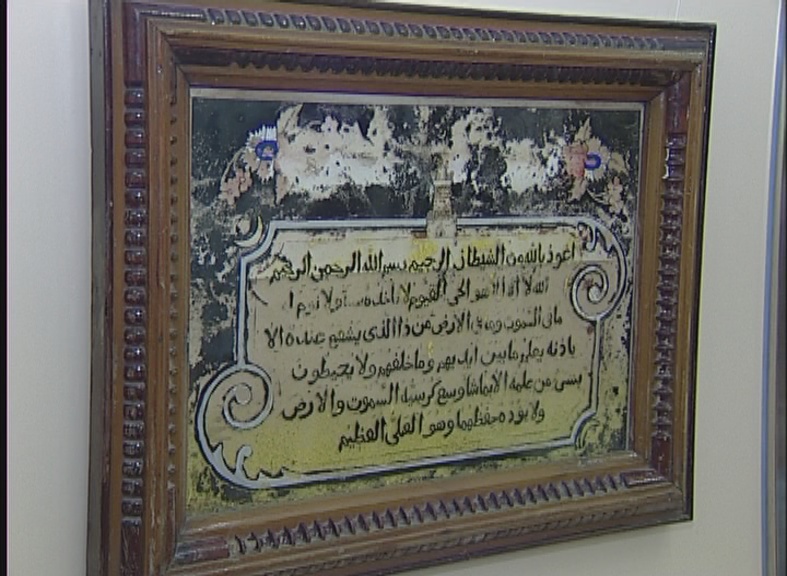 اعوذ بالله من الشيطان الرجيم بسم الله الرحمن الرحيم
الله لا اله الا هو الحي القيوم لا تاخذه سنة ولا نوم
ما فى السموت وما فى الارض من ذا الذى يشفع عنده الا
باذنه يعلم ما بين ايديهم وما خلفهم ولا يحيطون
بشى من علمه الا بما شا وسع كرسيه السموت والارض
ولا يؤده حفظهما وهو العلى العظيم